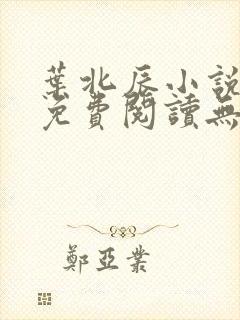 葉北辰小說
免費閱讀無
鄭亞業